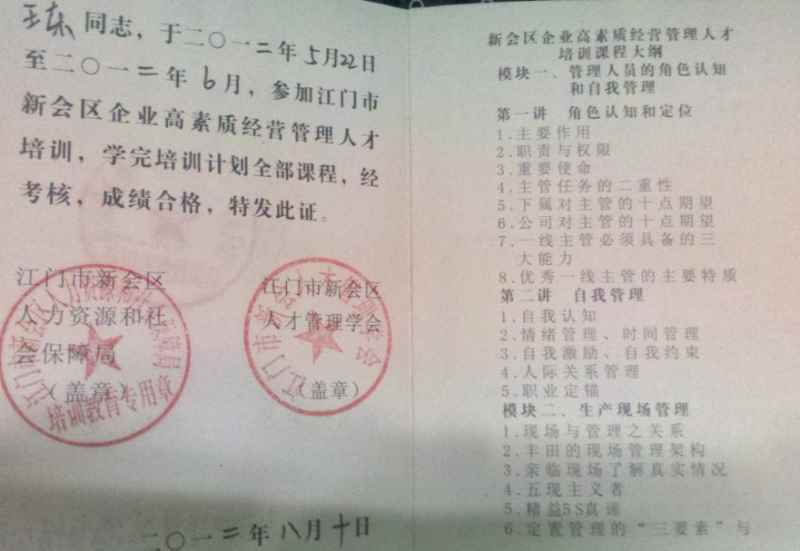 王东同志，于二〇一二年5月22日
至二〇一二年6月，参加江门市
新会区企业高素质经营管理人才
培训，学完培训计划全部课程，经
考核，成绩合格，特发此证。
江门市新会区
人力资源和社
会保障局
（盖章）
培训教育专用章
江门市新会区
人才管理学会
（盖章）
二〇一二年八月十日
新会区企业高素质经营管理人才
培训课程大纲
模块一、管理人员的角色认知
和自我管理
第一讲 角色认知和定位
1.主要作用
2.职责与权限
3.重要使命
4.主管任务的二重性
5.下属对主管的十点期望
6.公司对主管的十点期望
7.一线主管必须具备的三
大能力
8.优秀一线主管的主要特质
第二讲 自我管理
1.自我认知
2.情绪管理、时间管理
3.自我激励、自我约束
4.人际关系管理
5.职业定锚
模块二、生产现场管理
1.现场与管理之关系
2.丰田的现场管理架构
3.亲临现场了解真实情况
4.五现主义者
5.精益5S真谛
6.定置管理的“三要素”与